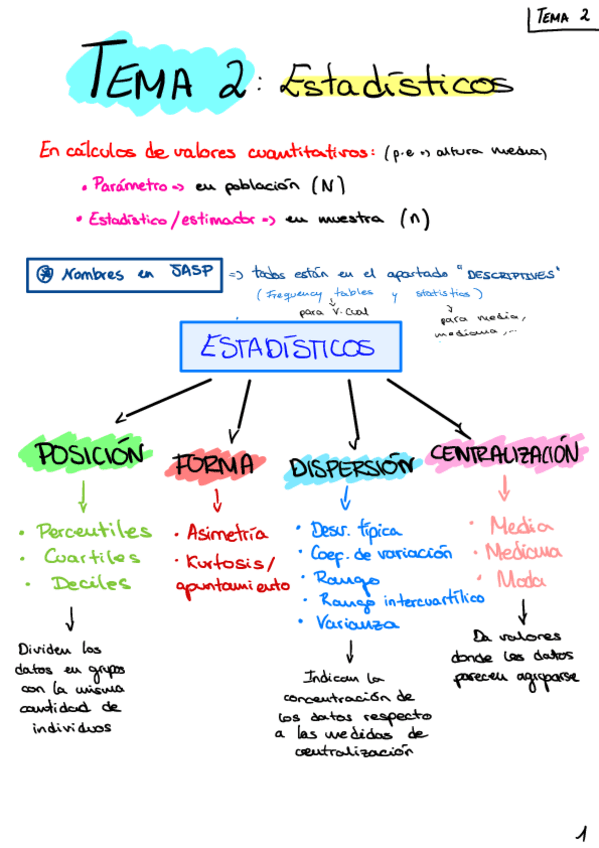 TEMA 2
TEMA 2: Estadísticos
En cálculos de valores cuantitativos: (p.e => altura media)
• Parámetro => en población (N)
• Estadístico/estimador => en muestra (n)
Nombres en JASP => todos están en el apartado "DESCRIPTIVES"
(Frequency tables y statistics)
para V. cual
para media,
mediana,...
ESTADÍSTICOS
POSICIÓN
FORMA
DISPERSIÓN
CENTRALIZACIÓN
• Percentiles
• Cuartiles
• Deciles
Dividen los
datos en grupos
con la misma
cantidad de
individuos
• Asimetría
• Kurtosis/
apuntamiento
• Desv. típica
• Coef. de variación
• Rango
• Rango intercuartílico
• Varianza
Indican la
concentración de
los datos respecto
a las medidas de
centralización
• Media
• Mediana
• Moda
Da valores
donde los datos
parecen agruparse
1